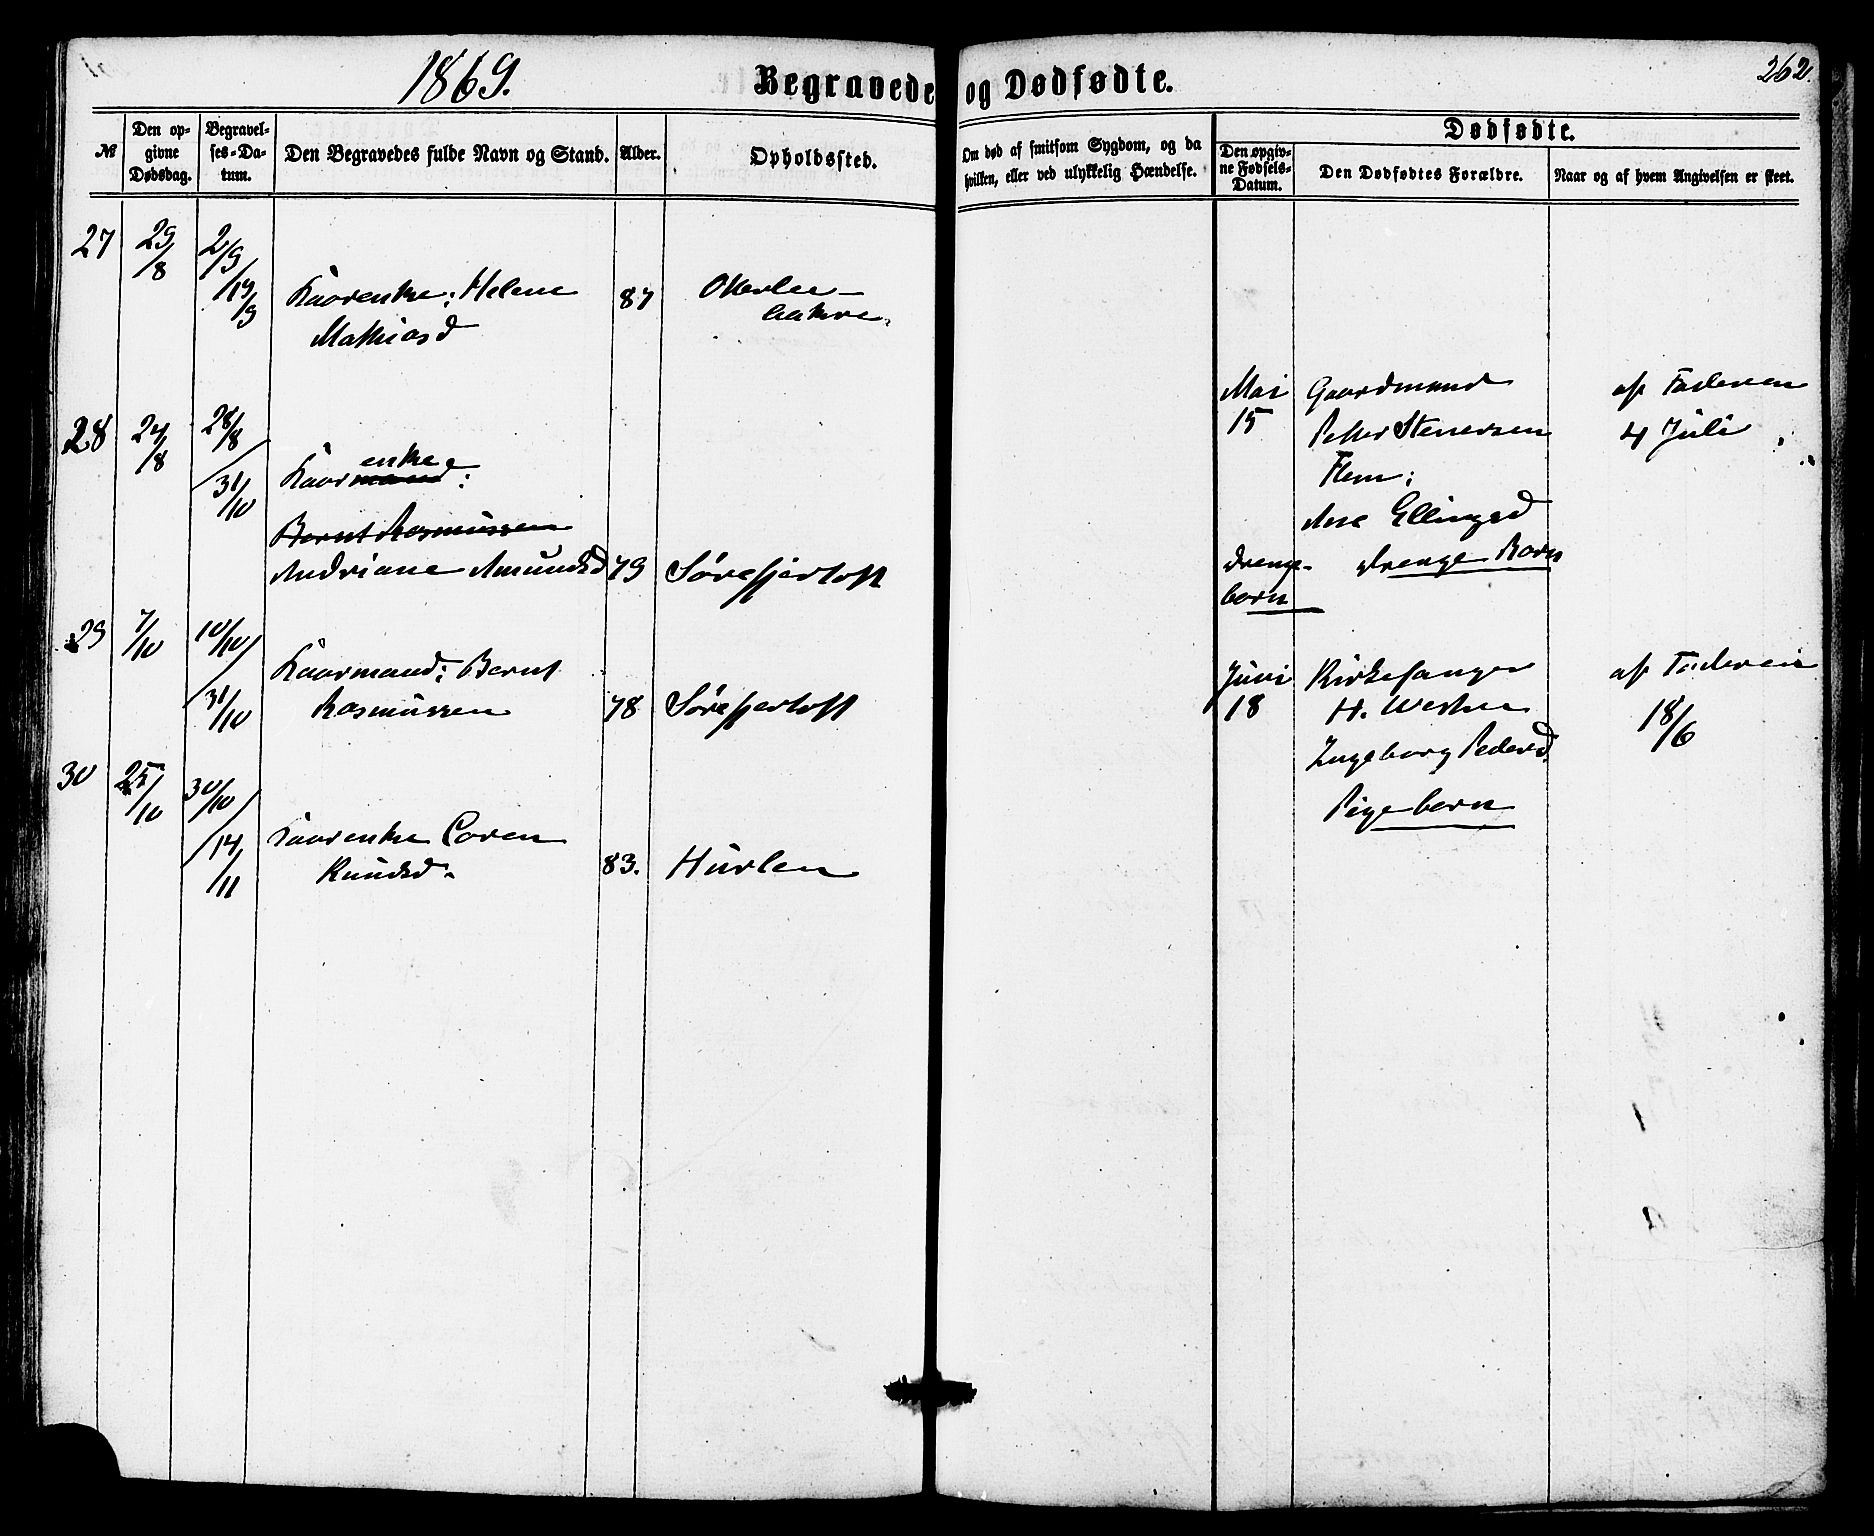 1869.
Begravede og Dødfødte.
262.
№
Den op-
givne
Dødsdag.
Begravel-
ses-Da-
tum.
Den Begravedes fulde Navn og Stand.
Alder.
Opholdssted.
Om død af smitsom Sygdom, og da
hvilken, eller ved ulykkelig Hændelse.
Dødfødte.
Den opgiv-
ne Fødsels-
Datum.
Den Dødfødtes Forældre.
Naar og af hvem Angivelsen er skeet.
27
29/8
2/9
19/9
Kaarenke: Helene
Mathiasd
87
28
24/8
28/8
31/10
enke
Kaarmand:
Bernt Rasmussen
Andriane Amundsd
79
Sørefjertoft
29
7/10
10/10
31/10
Kaarmand: Bernt
Rasmussen
78
Sørefjertoft
30
25/10
30/10
14/11
Kaarenke Caren
Knudsd.
83.
Hurlen
Mai
15
Gaardmand
Petter Stenersen
Flem;
Ane Ellingsd
Drenge Barn
Drenge-
barn
af Faderen
4 Juli
Juni
18
Kirkesanger
Ingeborg Pedersd.
Pigebarn
af Faderen
18/6